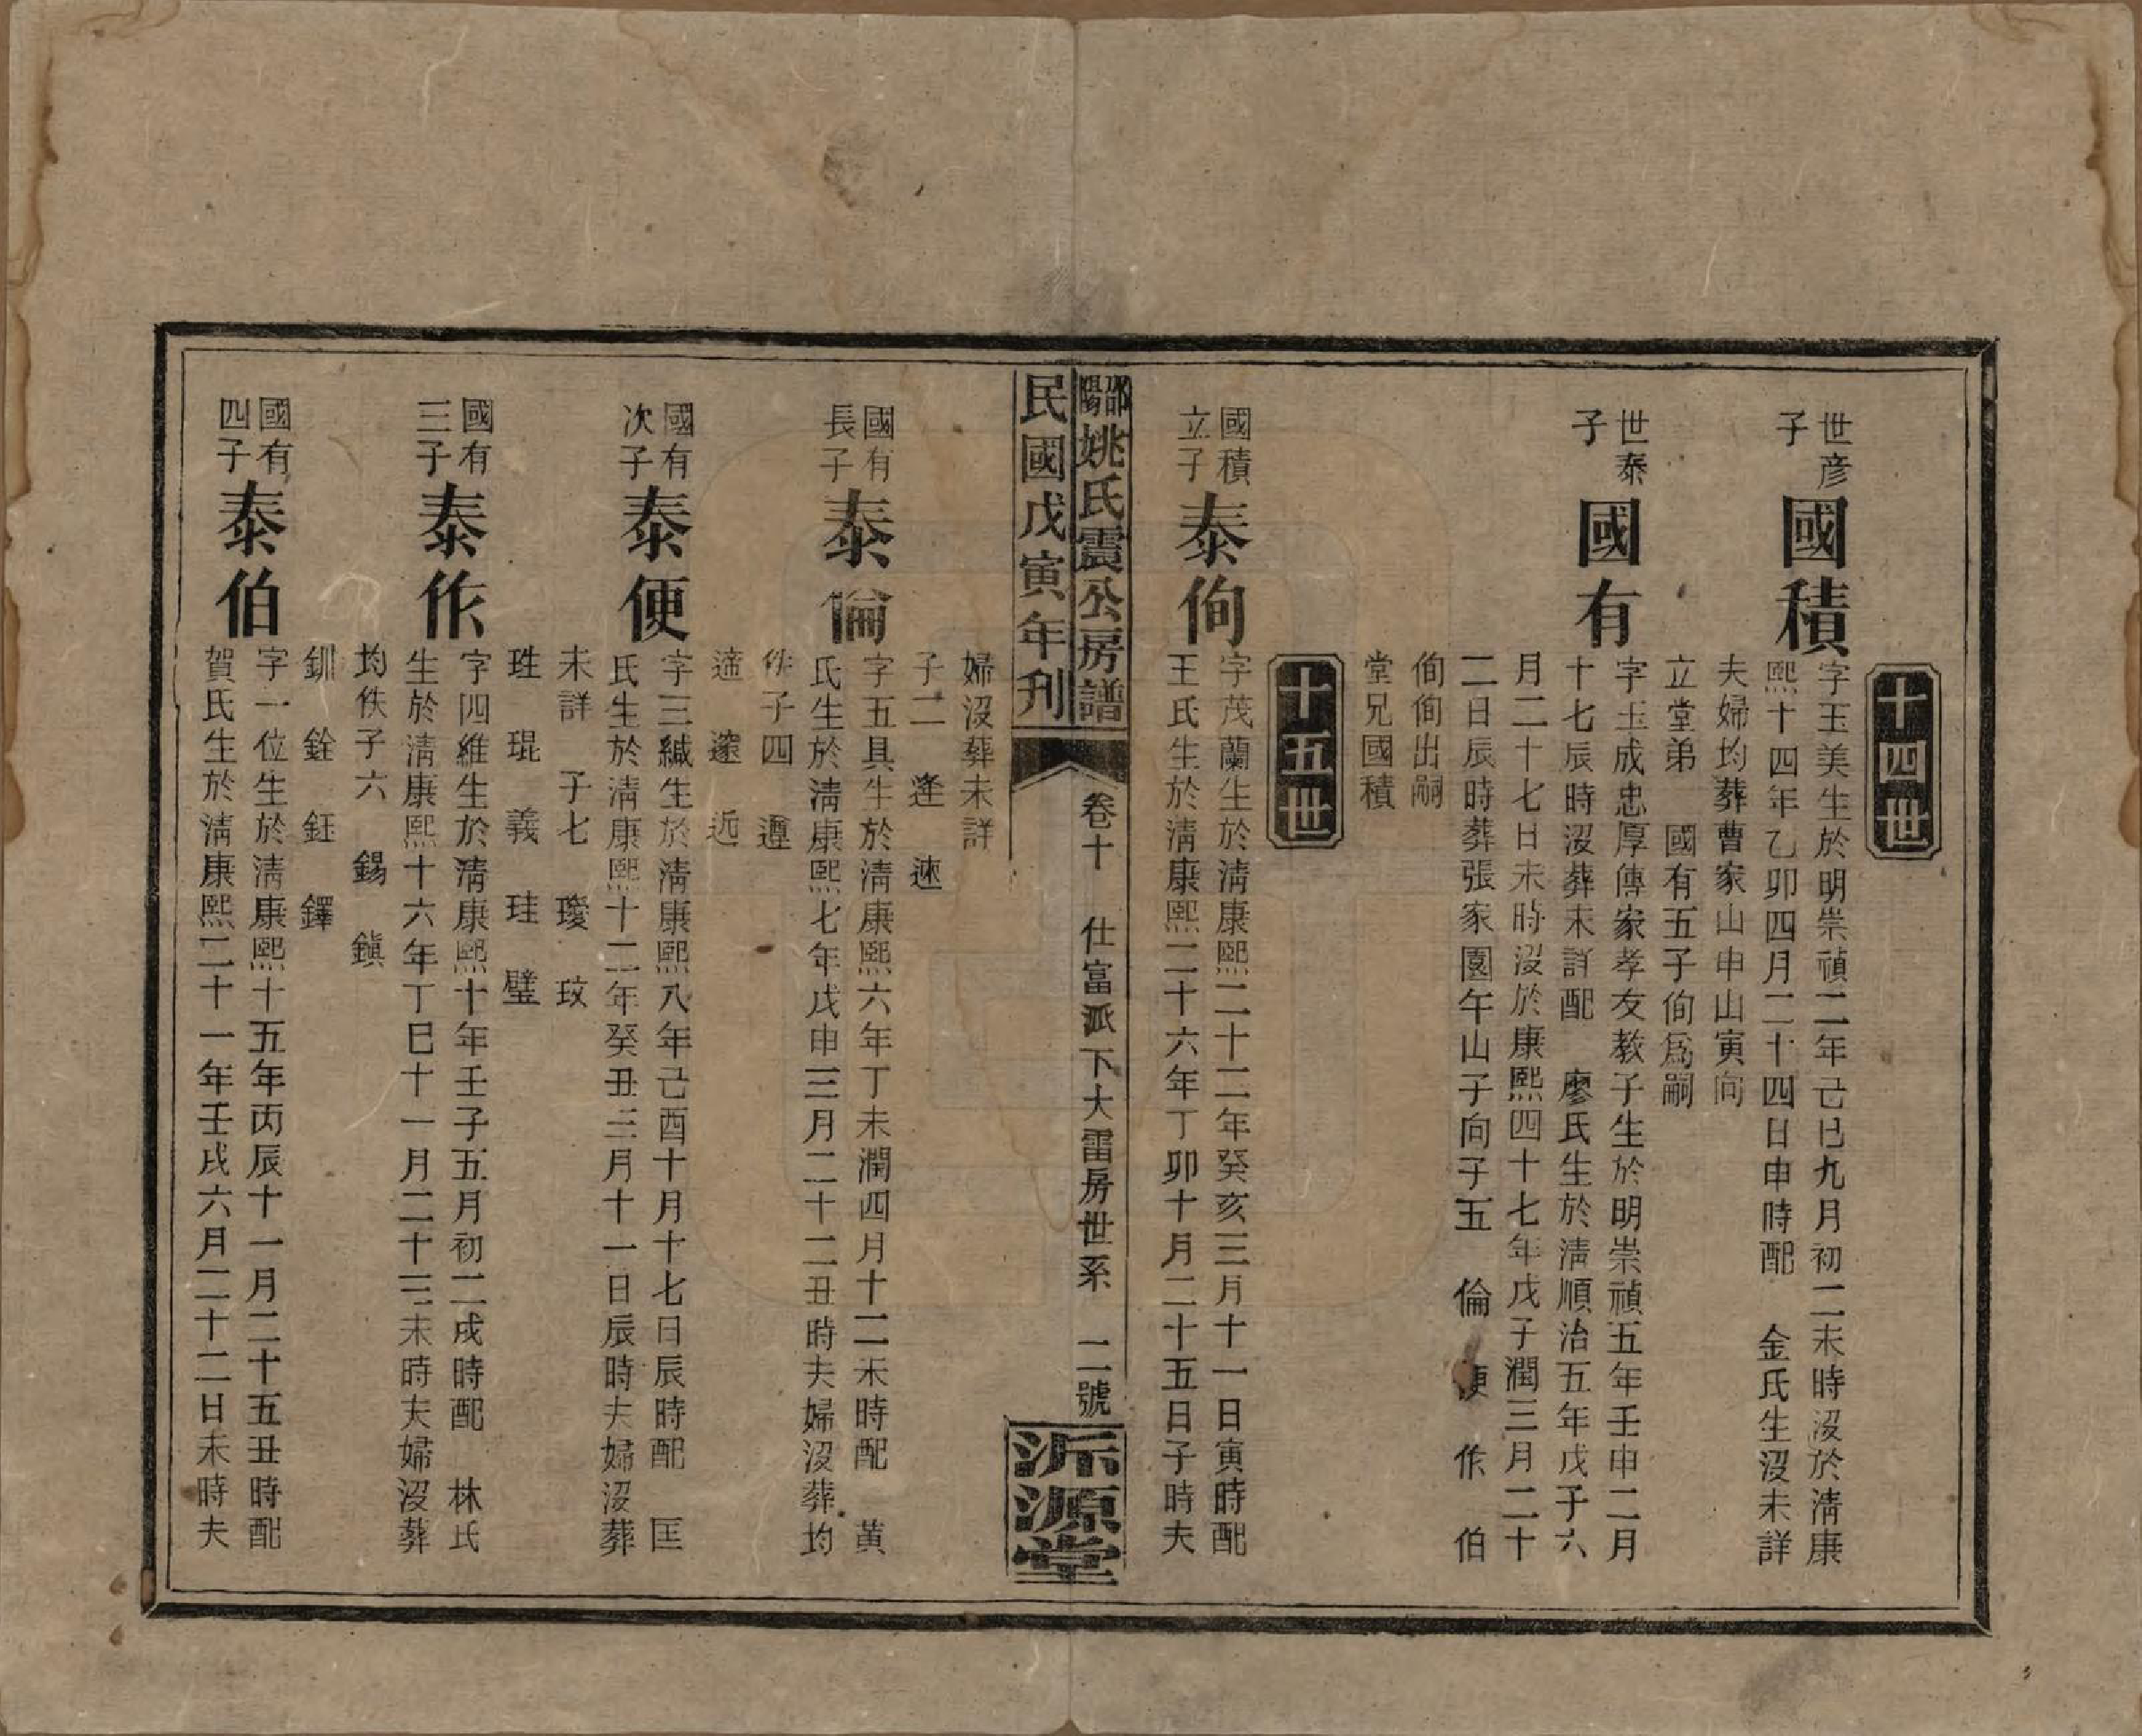 十四世
世彦
子
國積
字玉美生於明崇禎二年己巳九月初二未時沒於淸康
熙十四年乙卯四月二十四日申時配 金氏生沒未詳
夫婦均葬曹家山申山寅向
立堂弟 國有五子佝爲嗣
世泰
子
國有
字玉成忠厚傳家孝友教子生於明崇禎五年壬申二月
十七辰時沒葬未詳配 廖氏生於淸順治五年戊子六
月二十七日未時沒於康熙四十七年戊子潤三月二十
二日辰時葬張家園午山子向子五 倫 便 作 伯
佝佝出嗣
堂兄國積
十五世
國積
立子
泰佝
字茂蘭生於淸康熙二十二年癸亥三月十一日寅時配
王氏生於淸康熙二十六年丁卯十月二十五日子時夫
邵陽姚氏震公房譜
民國戊寅年刋
卷十 仕富派下大雷房世系 二號
派源堂
婦沒葬未詳
子二 逢 速
國有
長子
泰倫
字五具生於淸康熙六年丁未潤四月十二未時配 黃
氏生於淸康熙七年戊申三月二十二丑時夫婦沒葬均
佚子四 遵
適 邃 近
國有
次子
泰便
字三緘生於淸康熙八年己酉十月十七日辰時配 匡
氏生於淸康熙十二年癸丑三月十一日辰時夫婦沒葬
未詳 子七 瓊 玟
珄 琨 義 珪 璧
國有
三子
泰作
字四維生於淸康熙十年壬子五月初二戌時配 林氏
生於淸康熙十六年丁巳十一月二十三未時夫婦沒葬
均佚子六 錫 鎭
釧 銓 鈺 鐸
國有
四子
泰伯
字一位生於淸康熙十五年丙辰十一月二十五丑時配
賀氏生於淸康熙二十一年壬戌六月二十二日未時夫